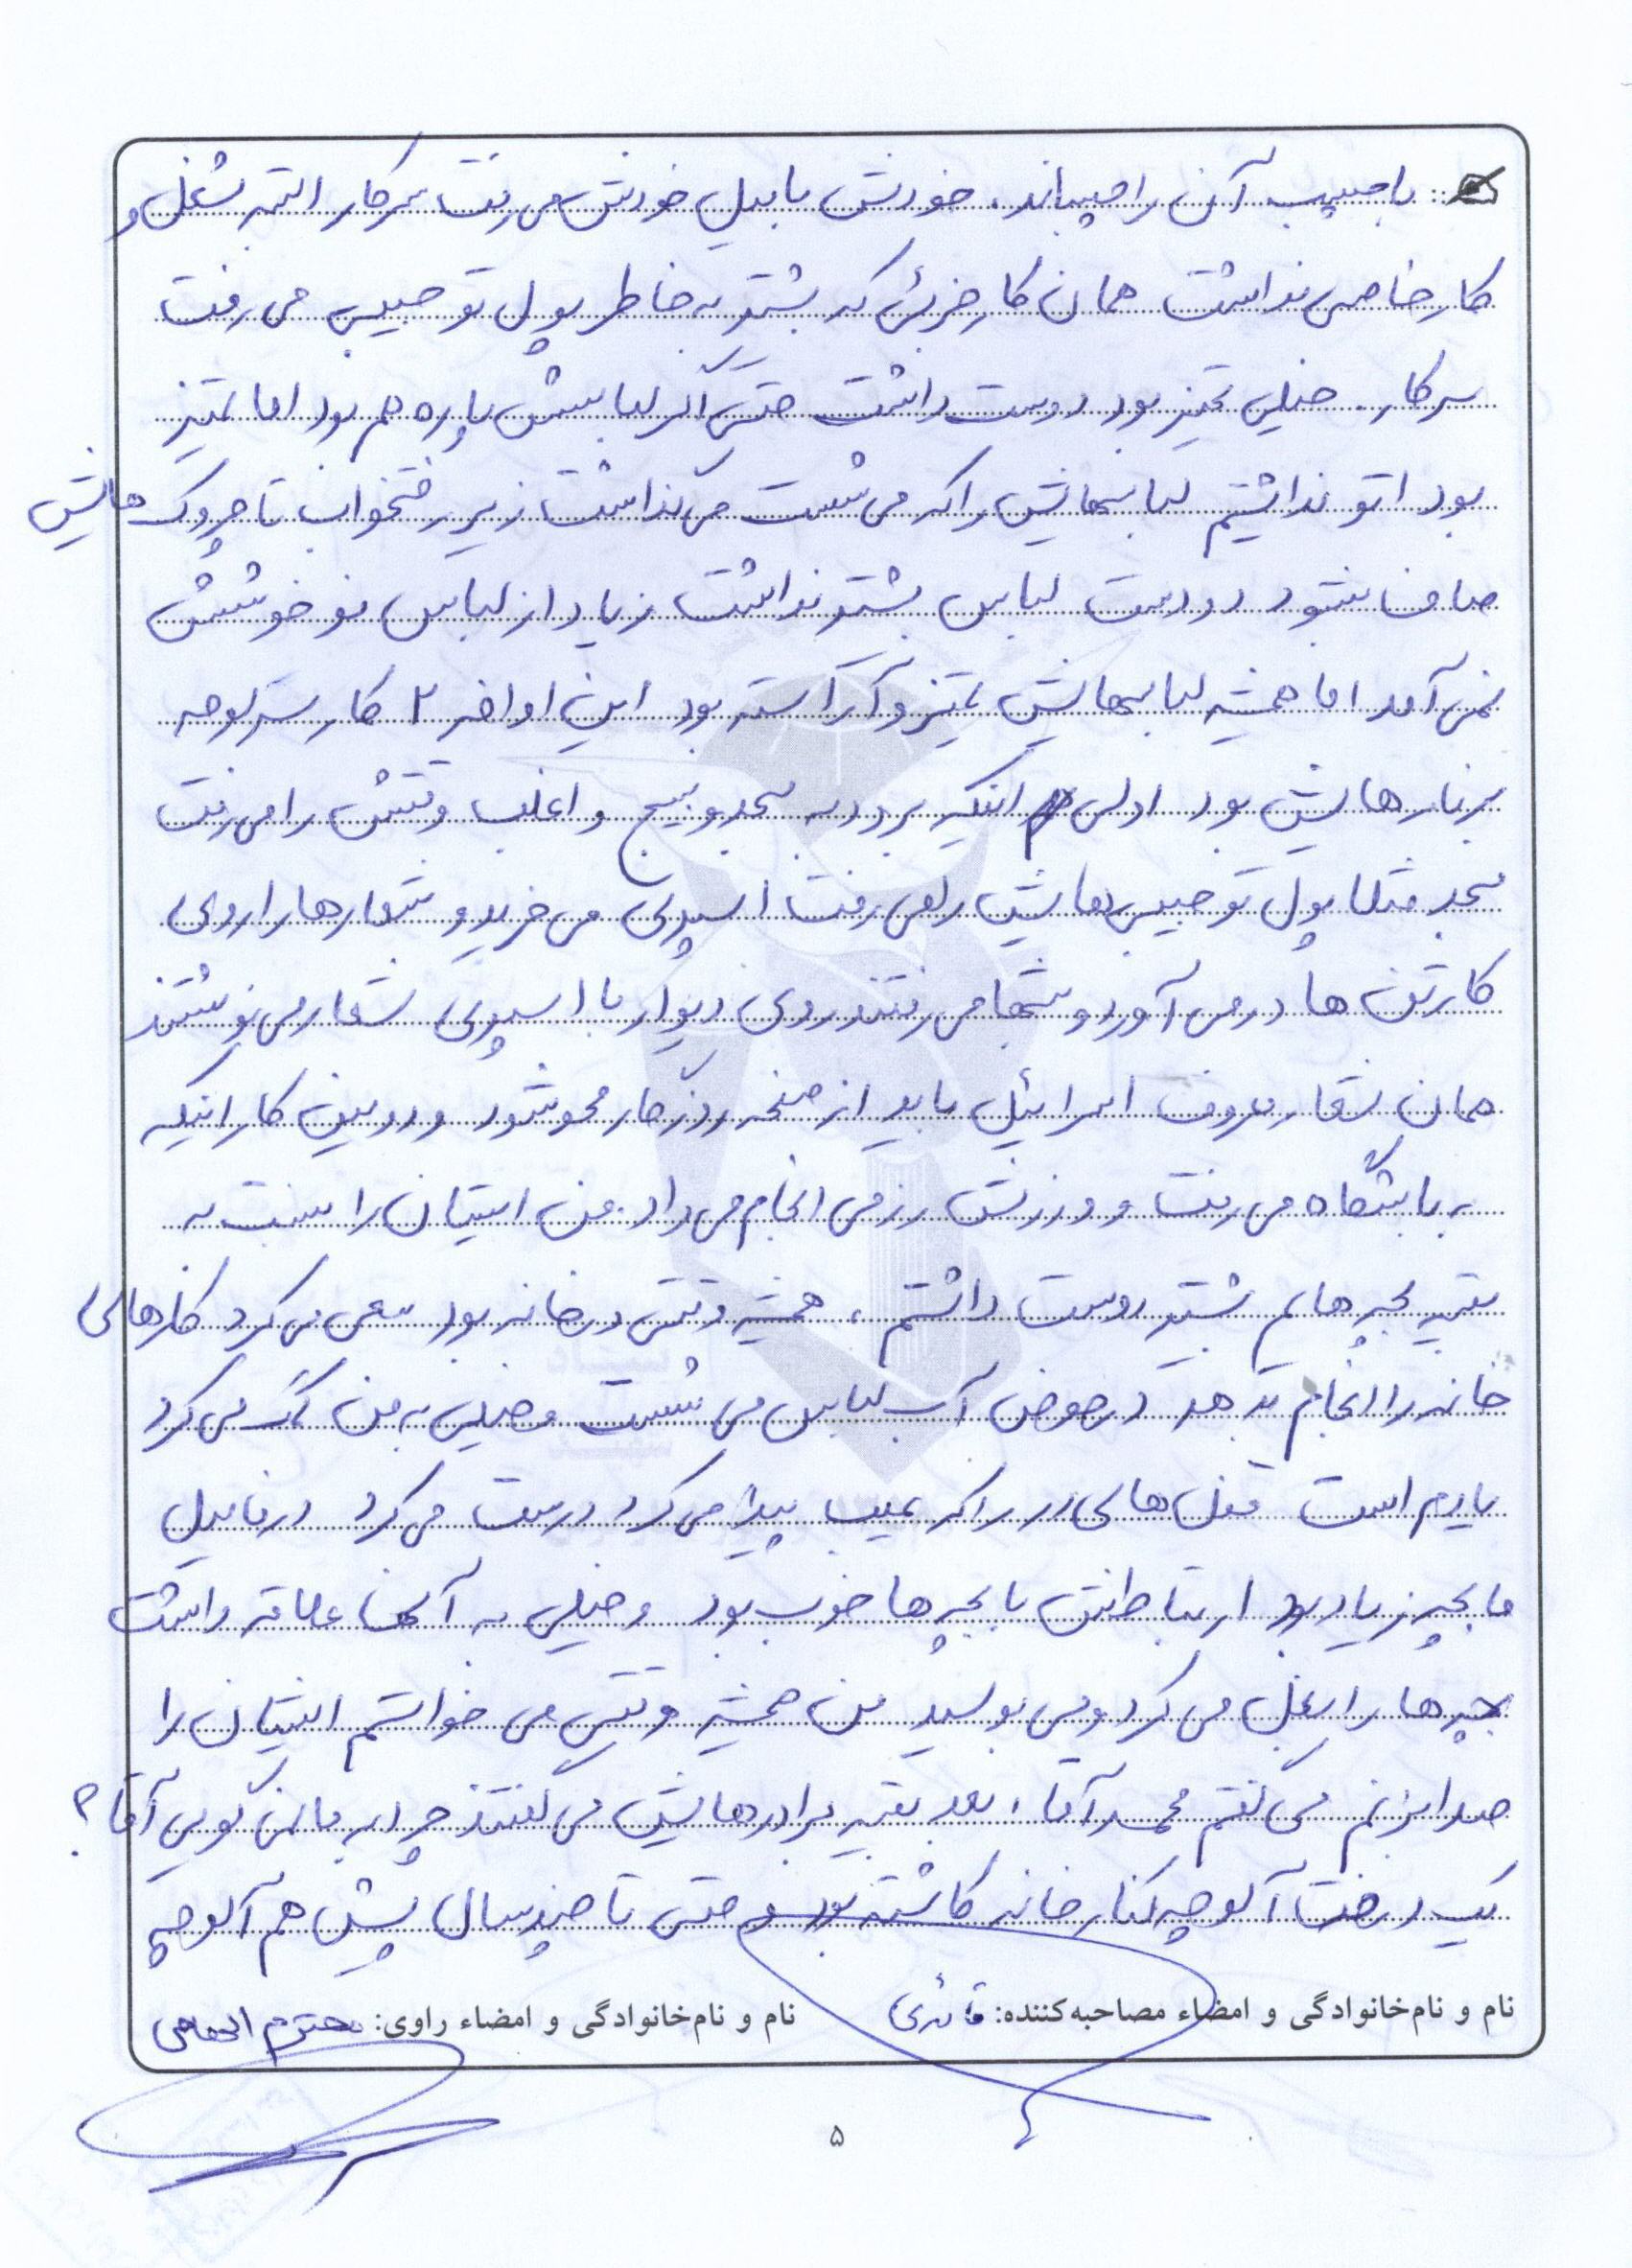 با چسب آن را چسباند. خودش با میل خودش می رفت سرکار البته شغل و
کار خاصی نداشت همان کار جزئی که بیشتر به خاطر پول تو جیبی می رفت
سرکار. خیلی تمیز بود دوست داشت حتی اگر لباسش پاره هم بود اما تمیز
بود اتو نداشتیم لباسهایش را که می شست می گذاشت زیر رختخواب تا چروک هایش
صاف بشود دو دست لباس بیشتر نداشت زیاد از لباس نو خوشش
نمی آمد اما همیشه لباسهایش تمیز و آراسته بود این اواخر ۲ کار سرلوحه
برنار هایش بود اولی اینکه برود به مسجد و بسیج و اغلب وقتش را می رفت
مسجد مثلا پول تو جیبی هایش را می رفت اسپری می خرید و شعارها را روی
کارتن ها در می آورد و شبها می رفتند روی دیوار با اسپری شعار می نوشتند
همان شعار معروف اسرائیل باید از صفحه روزگار محو شود و دومین کار اینکه
به باشگاه می رفت و ورزش رزمی انجام می داد. من ایشان را نسبت به
بقیه بچه هایم بیشتر دوست داشتم ، همیشه وقتی در خانه بود سعی می کرد کارهای
خانه را انجام بدهد در حوض آب لباس می شست و خیلی به من کمک می کرد
یادم است قفل های در را که عیب پیدا می کرد درست می کرد در فامیل
ما بچه زیاد بود ارتباطش با بچه ها خوب بود و خیلی به آنها علاقه داشت
بچه ها را بغل می کرد و می بوسید من همیشه وقتی می خواستم ایشان را
صدا بزنم می گفتم محمد آقا ، بعد بقیه برادرهایش می گفتند چرا به ما نمی گویی آقا؟
یک درخت آلوچه کنار خانه کاشته بود و حتی تا چند سال پیش هم آلوچه
نام و نام خانوادگی و امضاء مصاحبه کننده: قائدی نام و نام خانوادگی و امضاء راوی: محترم
۵